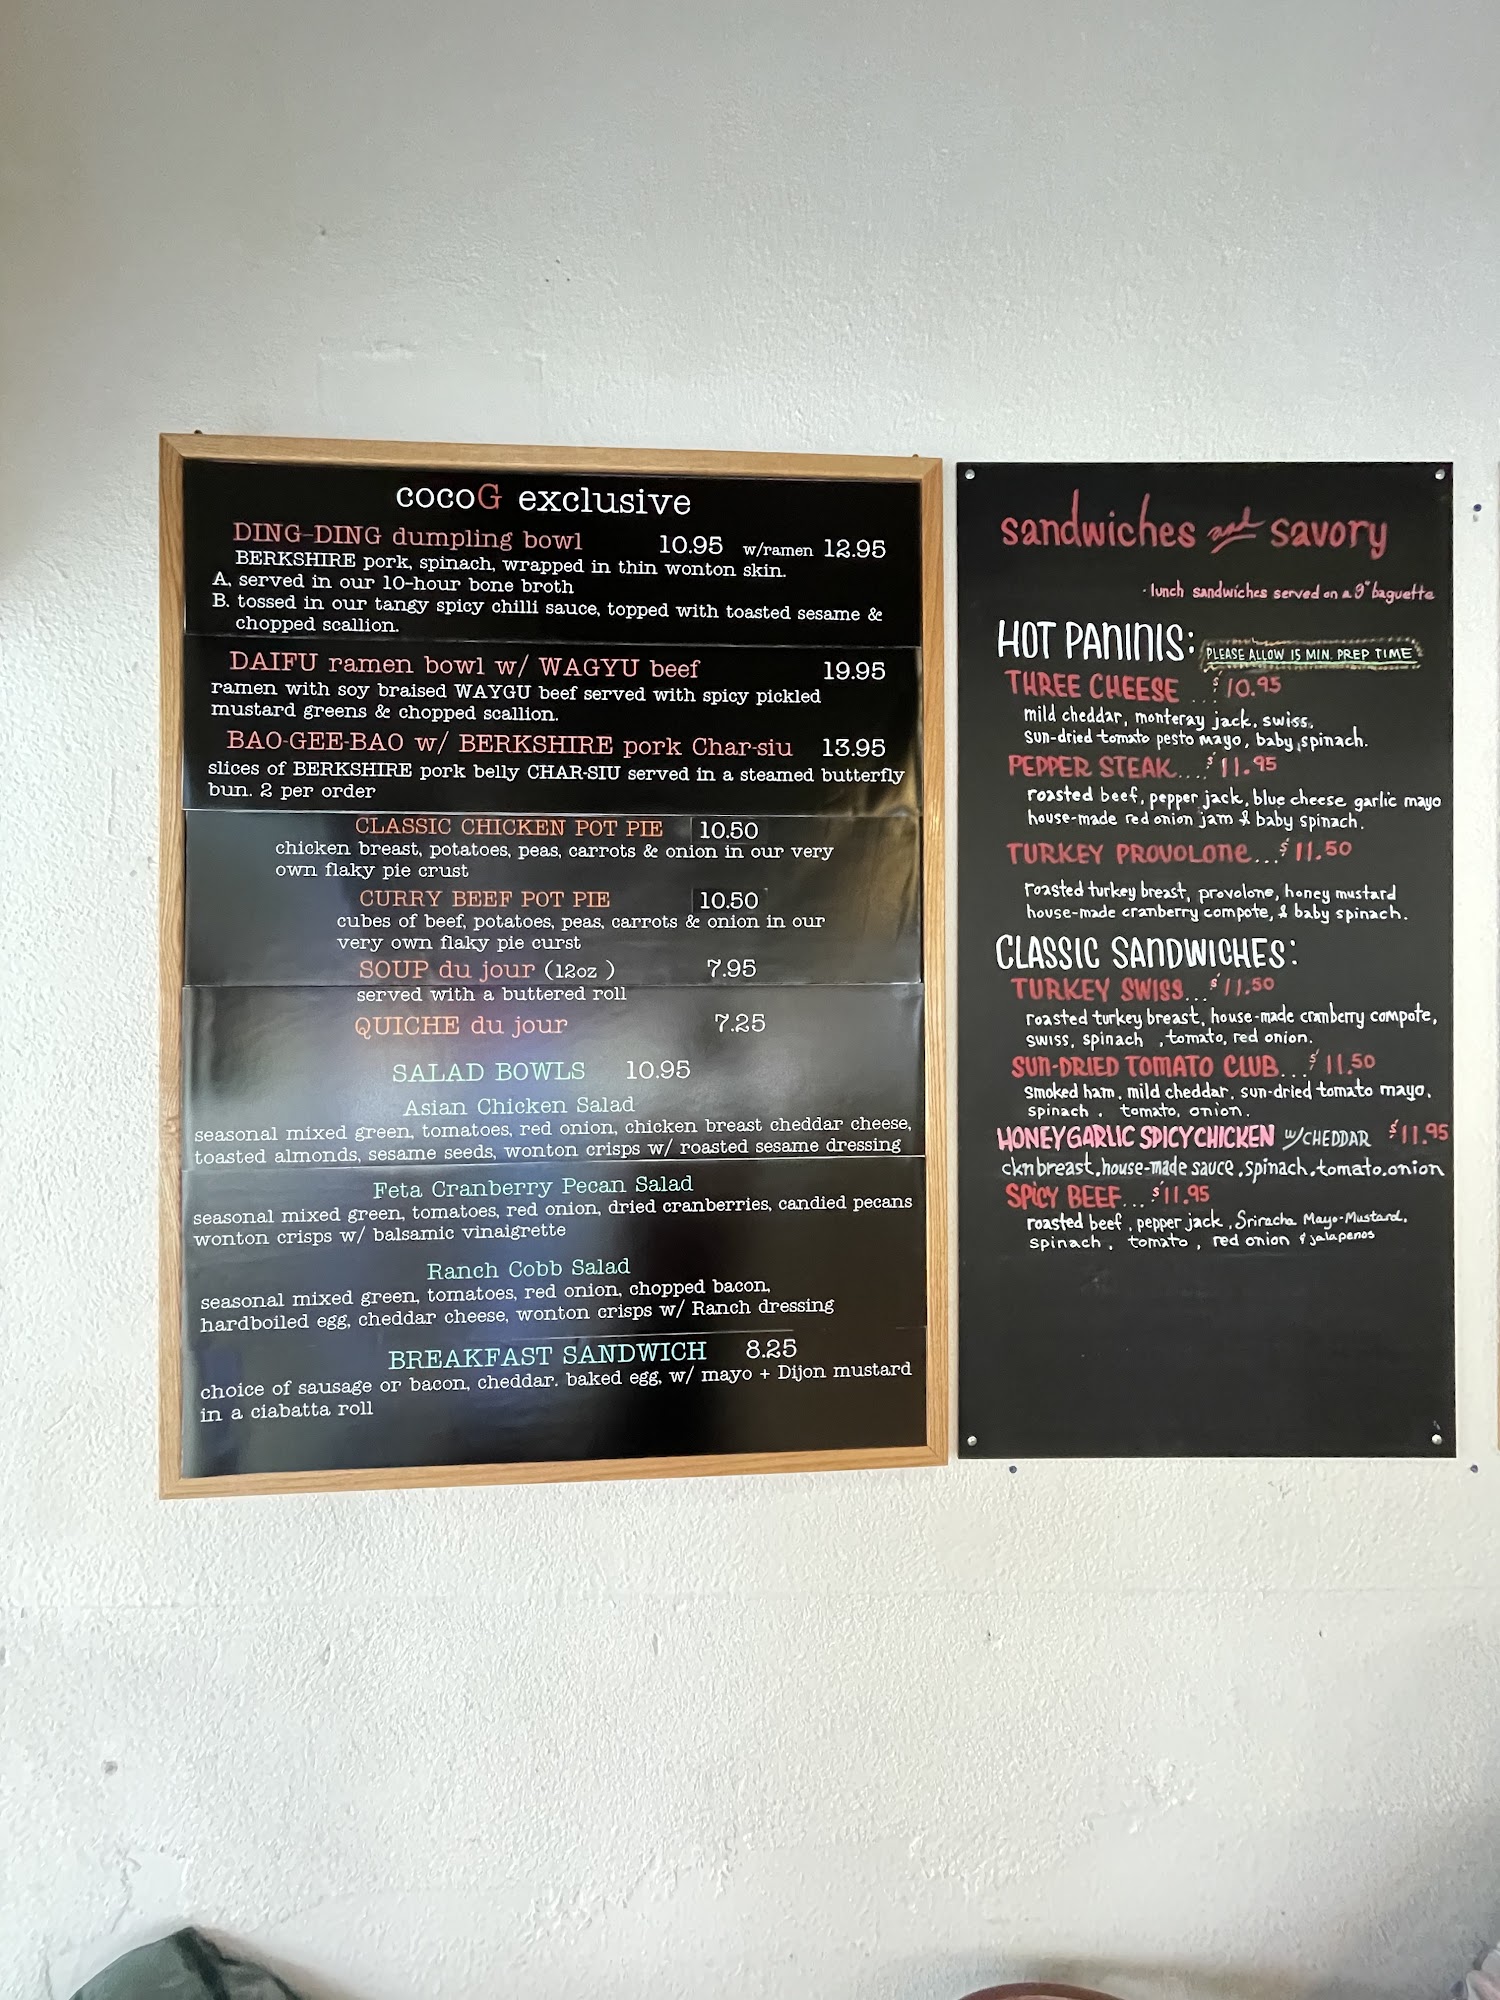 cocoG exclusive
DING-DING dumpling bowl 10.95 w/ramen 12.95
BERKSHIRE pork, spinach, wrapped in thin wonton skin.
A. served in our 10-hour bone broth
B. tossed in our tangy spicy chilli sauce, topped with toasted sesame &
chopped scallion.
DAIFU ramen bowl w/ WAGYU beef 19.95
ramen with soy braised WAYGU beef served with spicy pickled
mustard greens & chopped scallion.
BAO-GEE-BAO w/ BERKSHIRE pork Char-siu 13.95
slices of BERKSHIRE pork belly CHAR-SIU served in a steamed butterfly
bun. 2 per order
CLASSIC CHICKEN POT PIE 10.50
chicken breast, potatoes, peas, carrots & onion in our very
own flaky pie crust
CURRY BEEF POT PIE 10.50
cubes of beef, potatoes, peas, carrots & onion in our
very own flaky pie curst
SOUP du jour (12oz ) 7.95
served with a buttered roll
QUICHE du jour 7.25
SALAD BOWLS 10.95
Asian Chicken Salad
seasonal mixed green, tomatoes, red onion, chicken breast cheddar cheese,
toasted almonds, sesame seeds, wonton crisps w/ roasted sesame dressing
Feta Cranberry Pecan Salad
seasonal mixed green, tomatoes, red onion, dried cranberries, candied pecans
wonton crisps w/ balsamic vinaigrette
Ranch Cobb Salad
seasonal mixed green, tomatoes, red onion, chopped bacon,
hardboiled egg, cheddar cheese, wonton crisps w/ Ranch dressing
BREAKFAST SANDWICH 8.25
choice of sausage or bacon, cheddar. baked egg, w/ mayo + Dijon mustard
in a ciabatta roll
sandwiches and savory
- lunch sandwiches served on a 9" baguette
HOT PANINIS: PLEASE ALLOW 15 MIN. PREP TIME
THREE CHEESE ...$10.95
mild cheddar, monteray jack, swiss,
sun-dried tomato pesto mayo, baby spinach.
PEPPER STEAK....$11.95
roasted beef, pepper jack, blue cheese garlic mayo
house-made red onion jam & baby spinach.
TURKEY PROVOLONE...$11.50
roasted turkey breast, provolone, honey mustard
house-made cranberry compote, & baby spinach.
CLASSIC SANDWICHES:
TURKEY SWISS...$11.50
roasted turkey breast, house-made cranberry compote,
swiss, spinach , tomato, red onion.
SUN-DRIED TOMATO CLUB...$11.50
smoked ham, mild cheddar, sun-dried tomato mayo,
spinach , tomato, onion.
HONEY GARLIC SPICY CHICKEN w/CHEDDAR $11.95
ckn breast, house-made sauce, spinach, tomato, onion
SPICY BEEF...$11.95
roasted beef, pepper jack, Sriracha Mayo-Mustard,
spinach, tomato, red onion & jalapenos